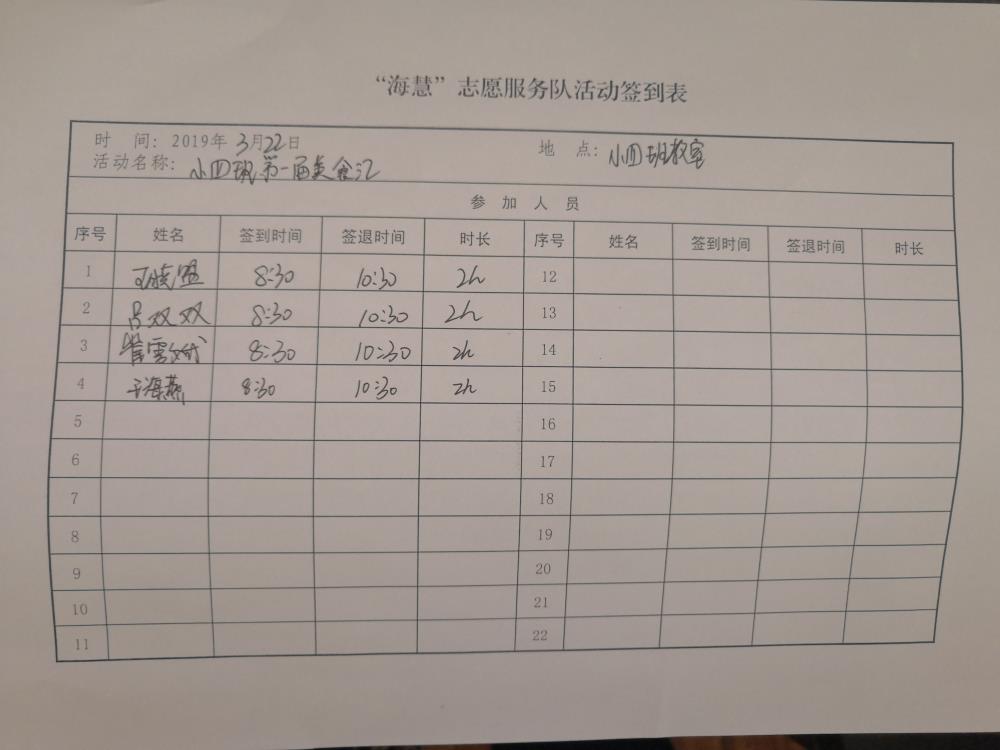 “海慧”志愿服务队活动签到表
时 间: 2019年 3月22日 地 点: 小四班教室
活动名称: 小四班第一届美食汇
参 加 人 员
序号 姓名 签到时间 签退时间 时长 序号 姓名 签到时间 签退时间 时长
1 王晓盟 8:30 10:30 2h 12
2 吕双双 8:30 10:30 2h 13
3 8:30 10:30 2h 14
4 于海燕 8:30 10:30 2h 15
5 16
6 17
7 18
8 19
9 20
10 21
11 22